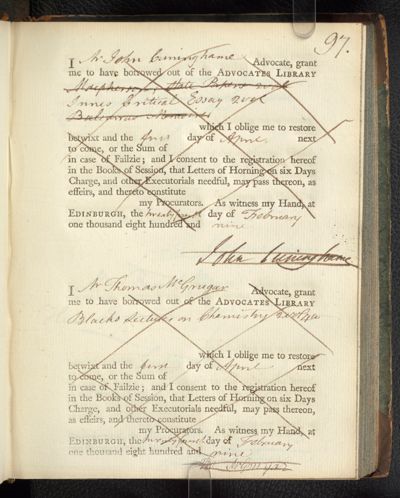 97.
I Mr John Cuninghame Advocate, grant
me to have borrowed out of the ADVOCATES LIBRARY
Macpherson's State Papers 2 vol
Innes Critical Essay 2 vol
Memoirs
which I oblige me to restore
betwixt and the first day of April next
to come, or the Sum of
in case of Failzie; and I consent to the registration hereof
in the Books of Session, that Letters of Horning on six Days
Charge, and other Executorials needful, may pass thereon, as
effeirs, and thereto constitute
my Procurators. As witness my Hand, at
EDINBURGH, the day of February
one thousand eight hundred and nine
John Cuninghame
I Mr Thomas McGrugar Advocate, grant
me to have borrowed out of the ADVOCATES LIBRARY
Blacks Lectures on Chemistry
which I oblige me to restore
betwixt and the first day of April next
to come, or the Sum of
in case of Failzie; and I consent to the registration hereof
in the Books of Session, that Letters of Horning on six Days
Charge, and other Executorials needful, may pass thereon,
as effeirs, and thereto constitute
my Procurators. As witness my Hand, at
EDINBURGH, the day of February
one thousand eight hundred and nine